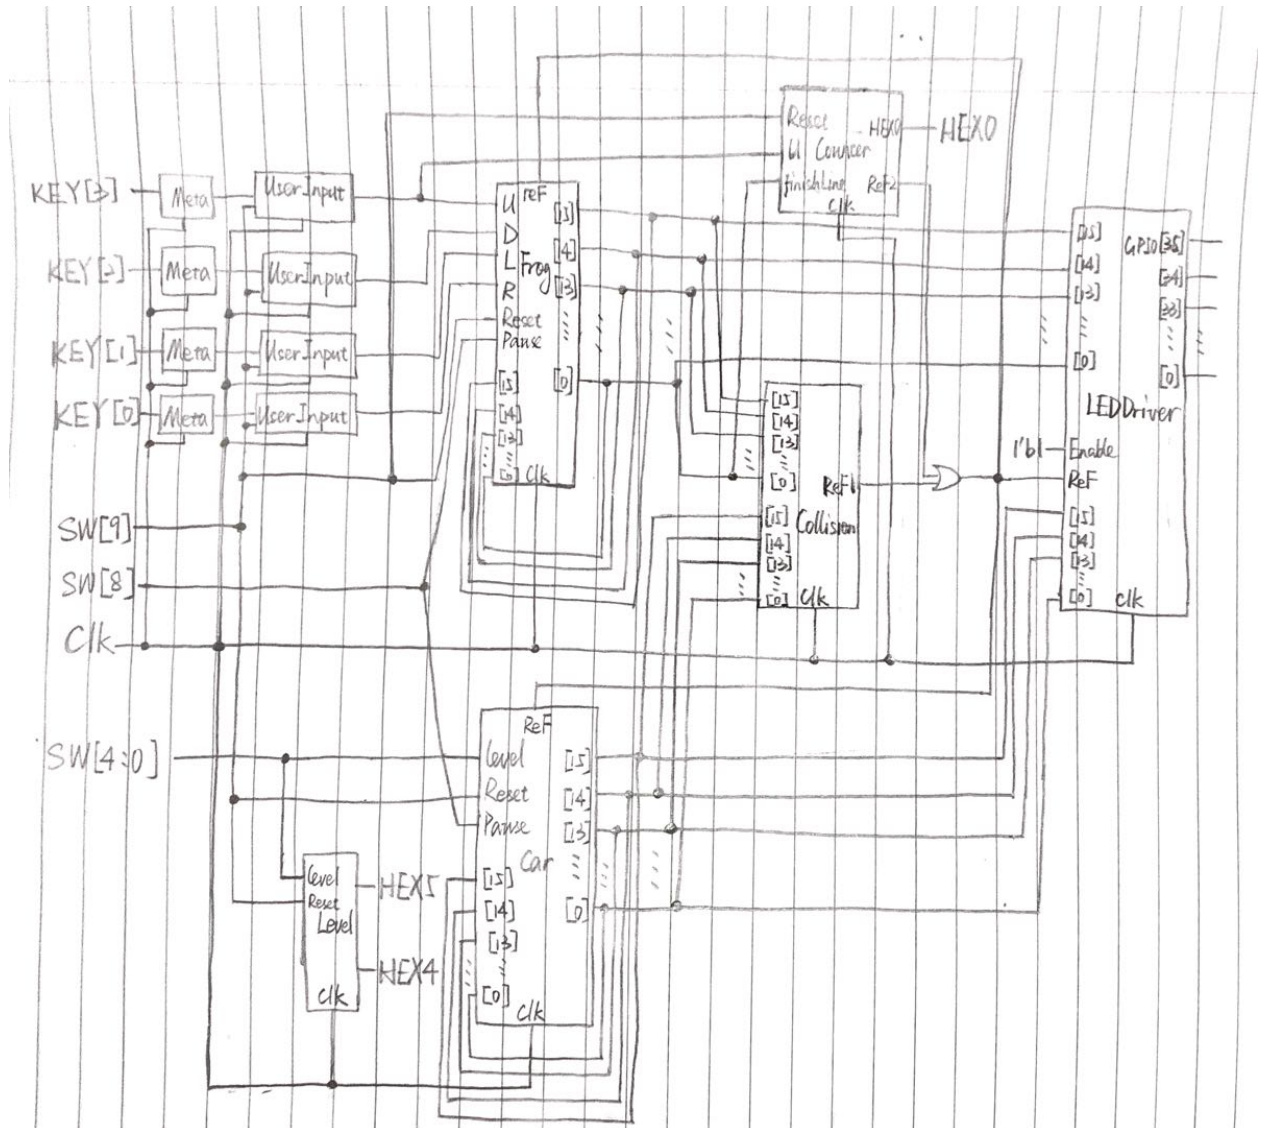 KEY[3]
Meta
User_Input
KEY[2]
Meta
User_Input
KEY[1]
Meta
User_Input
KEY[0]
Meta
User_Input
SW[9]
SW[8]
Clk
SW[4:0]
reF
U
D
L
R
Reset
Pause
Frog
[15]
[14]
[13]
[0]
[15]
[14]
[13]
[0]
Clk
Reset
U Counter
finishLine
HEX0
Ref2
Clk
HEX0
[15]
[14]
[13]
[0]
[15]
[14]
[13]
[0]
ReF1
Collision
Clk
[15]
[14]
[13]
[0]
LEDDriver
1'b1
Enable
ReF
[15]
[14]
[13]
[0]
GPIO[35]
[34]
[33]
[0]
Clk
ReF
level
Reset
Pause
Car
[15]
[14]
[13]
[0]
[15]
[14]
[13]
[0]
Clk
level
Reset
Level
Clk
HEX5
HEX4